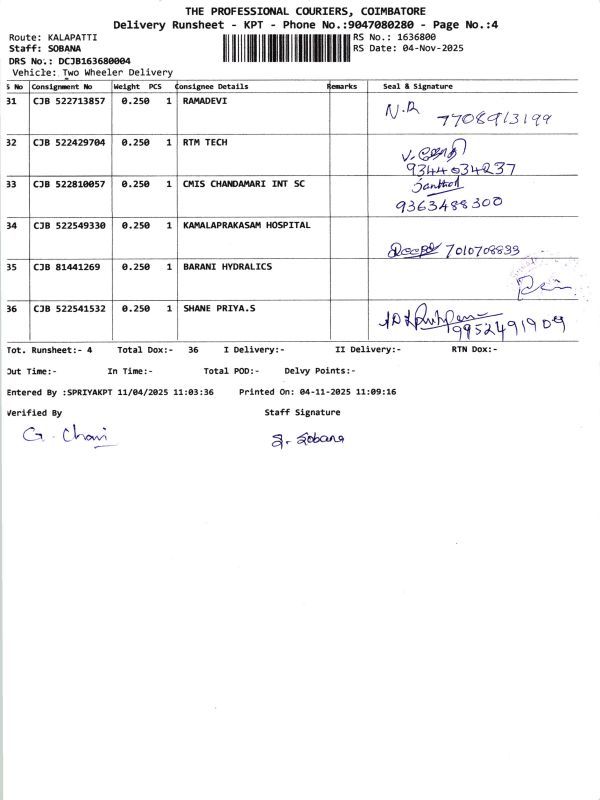 THE PROFESSIONAL COURIERS, COIMBATORE
Delivery Runsheet - KPT - Phone No.:9047080280 - Page No.:4
Route: KALAPATTI RS No.: 1636800
Staff: SOBANA RS Date: 04-Nov-2025
DRS No.: DCJB163680004
Vehicle: Two Wheeler Delivery
S No Consignment No Weight PCS Consignee Details Remarks Seal & Signature
31 CJB 522713857 0.250 1 RAMADEVI N.R 7708913199
32 CJB 522429704 0.250 1 RTM TECH 9344034237
33 CJB 522810057 0.250 1 CMIS CHANDAMARI INT SC 9363488300
34 CJB 522549330 0.250 1 KAMALAPRAKASAM HOSPITAL 7010708839
35 CJB 81441269 0.250 1 BARANI HYDRALICS
36 CJB 522541532 0.250 1 SHANE PRIYA.S 9952491909
Tot. Runsheet:- 4 Total Dox:- 36 I Delivery:- II Delivery:- RTN Dox:-
Out Time:- In Time:- Total POD:- Delvy Points:-
Entered By :SPRIYAKPT 11/04/2025 11:03:36 Printed On: 04-11-2025 11:09:16
Verified By Staff Signature
G. S. Sobana